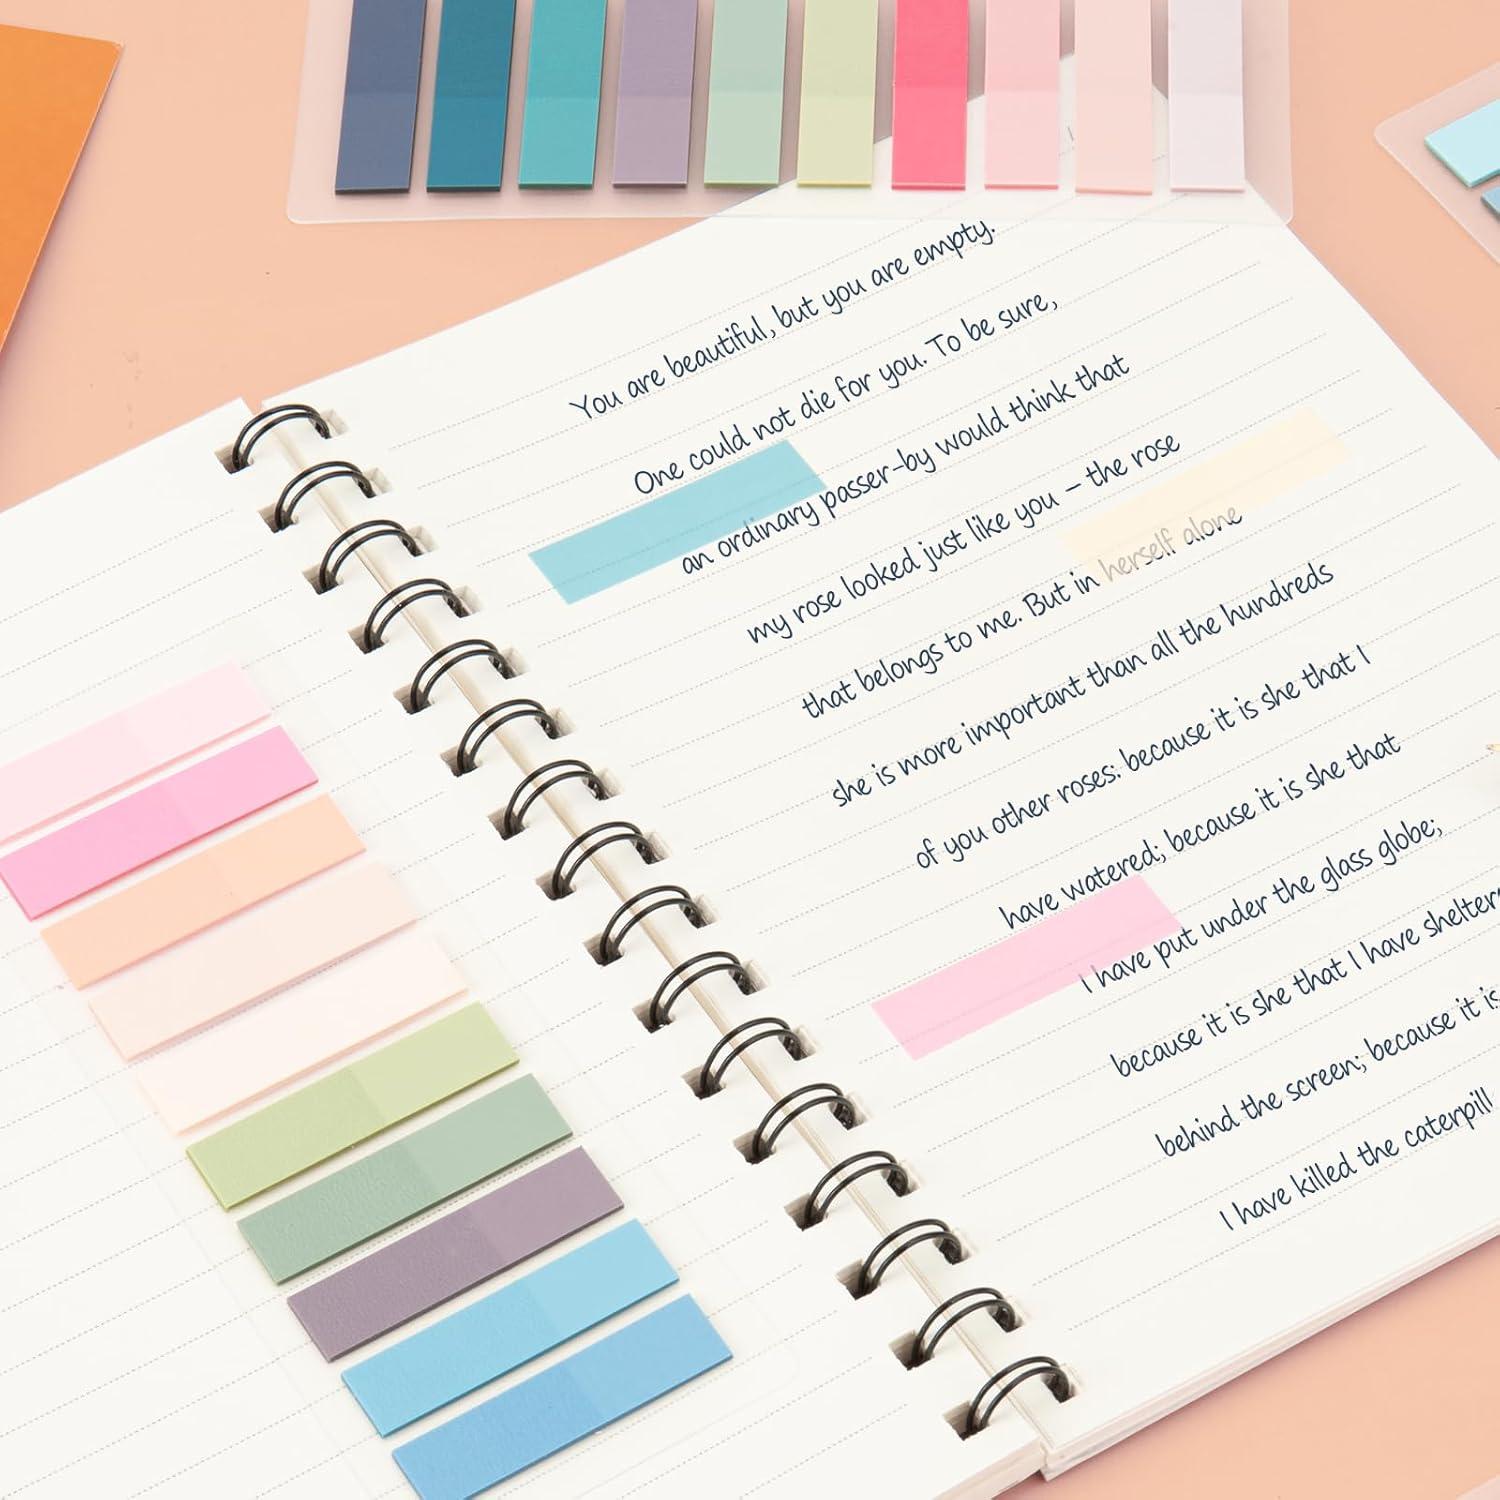 You are beautiful, but you are empty.
One could not die for you. To be sure,
an ordinary passer-by would think that
my rose looked just like you – the rose
that belongs to me. But in herself alone
she is more important than all the hundreds
of you other roses: because it is she that I
have watered; because it is she that
I have put under the glass globe;
because it is she that I have shelter
behind the screen; because it is
I have killed the caterpill